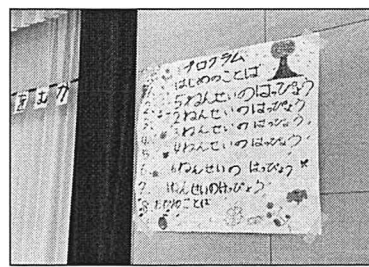 をむか
プログラム
はじめのことば
5ねんせいのはっぴょう
2ねんせいのはっぴょう
3ねんせいのはっぴょう
4ねんせいのはっぴょう
6ねんせいの はっぴょう
7. 1ねんせいのはっぴょう
8. おわりのことば